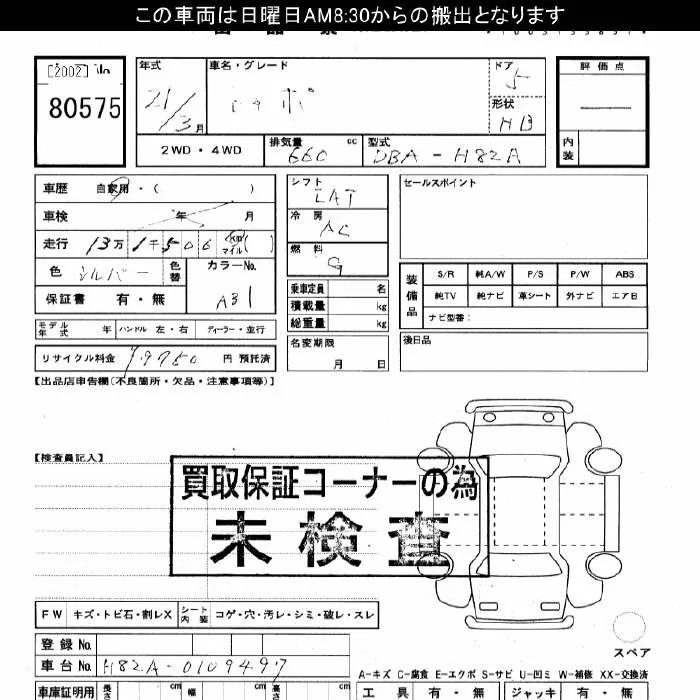 この車両は日曜日AM8:30からの搬出となります
[2002] No
80575
年式 車名・グレード ドア 評価点
21/3月 トッポ 5
形状 HB
2WD・4WD 排気量 660 cc 型式 DBA-H82A 内装
車歴 自家用・( )
車検 年 月
走行 13万1千506 km マイル( )
色 シルバー 色替 カラーNo. A31
保証書 有・無
モデル年式 年 ハンドル 左・右 ディーラー・並行
リサイクル料金 円 預託済
シフト LAT
冷房 AC
燃料 G
乗車定員 名
積載量 kg
総重量 kg
名変期限 月 日
セールスポイント
装備品 S/R 純A/W P/S P/W ABS
純TV 純ナビ 革シート 外ナビ エアB
ナビ型番:
後日品
【出品店申告欄(不良箇所・欠品・注意事項等)】
【検査員記入】
買取保証コーナーの為
未検査
FW キズ・トビ石・割レX シート内装 コゲ・穴・汚レ・シミ・破レ・スレ
スペア
登録 No.
車台 No. H82A-0109497
A-キズ C-腐食 E-エクボ S-サビ U-凹ミ W-補修 XX-交換済
車庫証明用 長さ cm 幅 cm 高さ cm 工具 有・無 ジャッキ 有・無